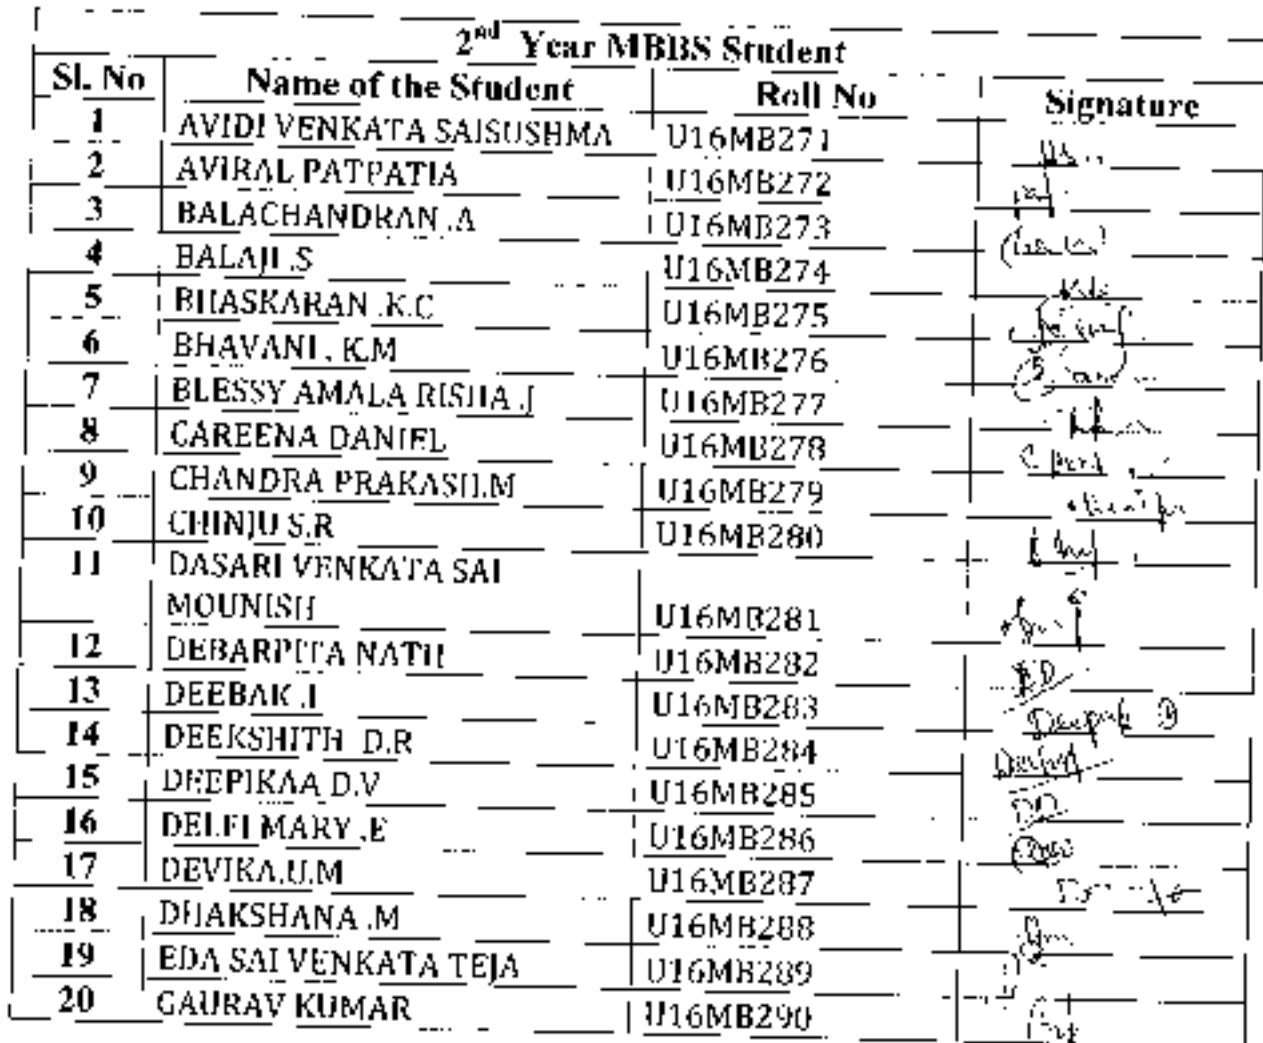 2nd Year MBBS Student
Sl. No Name of the Student Roll No Signature
1 AVIDI VENKATA SAISUSHMA U16MB271
2 AVIRAL PATPATIA U16MB272
3 BALACHANDRAN .A U16MB273
4 BALAJI .S U16MB274
5 BHASKARAN .K.C U16MB275
6 BHAVANI . K.M U16MB276
7 BLESSY AMALA RISHA .J U16MB277
8 CAREENA DANIEL U16MB278
9 CHANDRA PRAKASH.M U16MB279
10 CHINJU S.R U16MB280
11 DASARI VENKATA SAI
MOUNISH U16MB281
12 DEBARPITA NATH U16MB282
13 DEEBAK .I U16MB283
14 DEEKSHITH D.R U16MB284
15 DEEPIKAA D.V U16MB285
16 DELFI MARY .E U16MB286
17 DEVIKA.U.M U16MB287
18 DHAKSHANA .M U16MB288
19 EDA SAI VENKATA TEJA U16MB289
20 GAURAV KUMAR U16MB290